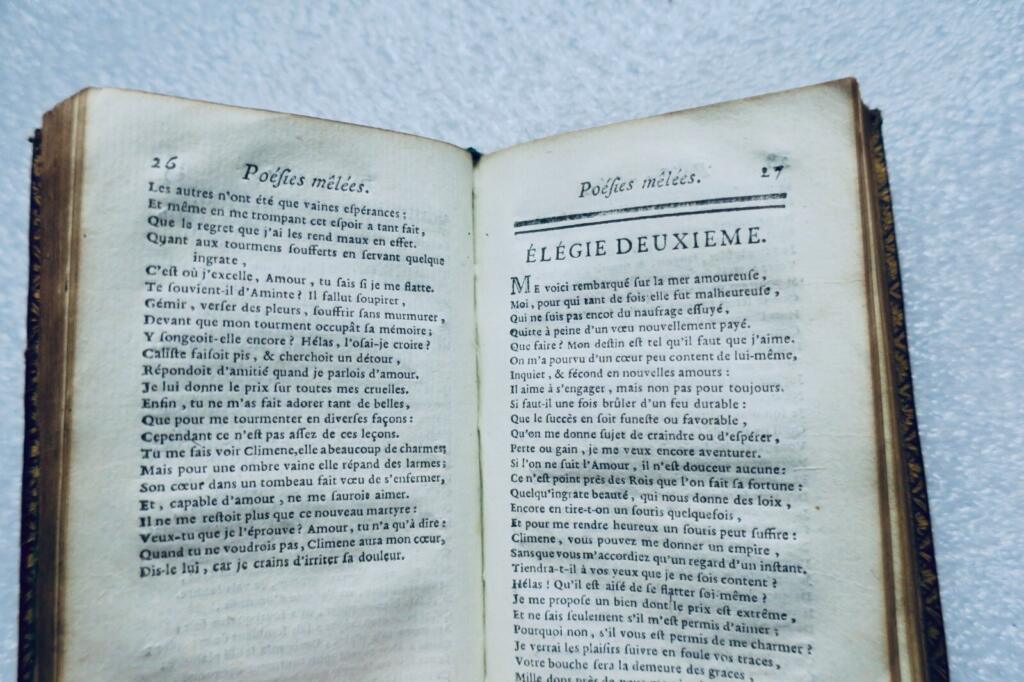 26
Poéſies mêlées.
Les autres n'ont été que vaines eſpérances ;
Et même en me trompant cet eſpoir a tant fait,
Que le regret que j'ai les rend maux en effet.
Quant aux tourmens ſoufferts en ſervant quelque
ingrate,
C'eſt où j'excelle, Amour, tu ſais ſi je me flatte.
Te ſouvient-il d'Aminte ? Il fallut ſoupirer,
Gémir, verſer des pleurs, ſouffrir ſans murmurer,
Devant que mon tourment occupât ſa mémoire ;
Y ſongeoit-elle encore ? Hélas, l'oſai-je croire ?
Caliſte faiſoit pis, & cherchoit un détour,
Répondoit d'amitié quand je parlois d'amour.
Je lui donne le prix ſur toutes mes cruelles.
Enfin, tu ne m'as fait adorer tant de belles,
Que pour me tourmenter en diverſes façons :
Cependant ce n'eſt pas aſſez de ces leçons.
Tu me fais voir Climene, elle a beaucoup de charmes ;
Mais pour une ombre vaine elle répand des larmes ;
Son cœur dans un tombeau fait vœu de s'enfermer,
Et, capable d'amour, ne me ſauroit aimer.
Il ne me reſtoit plus que ce nouveau martyre :
Veux-tu que je l'éprouve ? Amour, tu n'a qu'à dire :
Quand tu ne voudrois pas, Climene aura mon cœur,
Dis-le lui, car je crains d'irriter ſa douleur.
Poéſies mêlées.
27
ÉLÉGIE DEUXIEME.
ME voici rembarqué ſur la mer amoureuſe,
Moi, pour qui tant de fois elle fut malheureuſe,
Qui ne ſuis pas encor du naufrage eſſuyé,
Quitte à peine d'un vœu nouvellement payé.
Que faire ? Mon deſtin eſt tel qu'il faut que j'aime.
On m'a pourvu d'un cœur peu content de lui-même,
Inquiet, & fécond en nouvelles amours :
Il aime à s'engager, mais non pas pour toujours.
Si faut-il une fois brûler d'un feu durable :
Que le ſuccès en ſoit funeſte ou favorable,
Qu'on me donne ſujet de craindre ou d'eſpérer,
Perte ou gain, je me veux encore aventurer.
Si l'on ne ſuit l'Amour, il n'eſt douceur aucune :
Ce n'eſt point près des Rois que l'on fait ſa fortune :
Quelqu'ingrate beauté, qui nous donne des loix,
Encore en tire-t-on un ſouris quelquefois,
Et pour me rendre heureux un ſouris peut ſuffire :
Climene, vous pouvez me donner un empire,
Sans que vous m'accordiez qu'un regard d'un inſtant.
Tiendra-t-il à vos yeux que je ne ſois content ?
Hélas ! Qu'il eſt aiſé de ſe flatter ſoi-même ?
Je me propoſe un bien dont le prix eſt extrême,
Et ne ſais ſeulement s'il m'eſt permis d'aimer ;
Pourquoi non, s'il vous eſt permis de me charmer ?
Je verrai les plaiſirs ſuivre en foule vos traces,
Votre bouche ſera la demeure des graces,
Mille dons près de